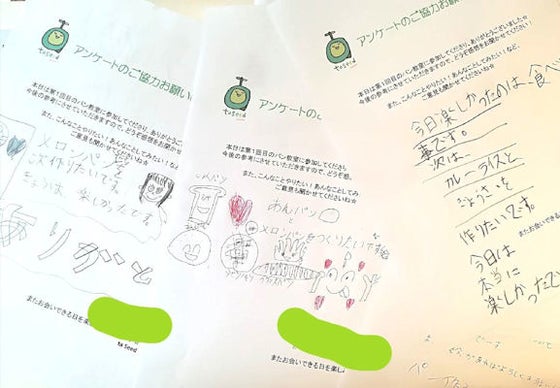 to seed
アンケートのご協力お願い
本日は第1回目のパン教室に参加してくださり、ありがとうござ
今後の参考にさせていただきますので、どうぞ感想を
また、こんなことやりたい！あんなことしてみたい！など
ご意見も聞かせてください☆
メロンパンを
次作りたいです
きょうは楽しかったです
ありがとう
またお会いできる日を楽
to Seed
to seed
アンケートのご
本日は第1回目のパン教室に参加してくださ
今後の参考にさせていただきますので、どうぞ感
また、こんなことやりたい！あんなことしてみ
ご意見も聞かせてください☆
あんパン
と
メロンパンをつくりたいです
またお会いできる日を楽し
to Seed
to seed
アンケートのご協力お願い
本日は第1回目のパン教室に参加してくださり、ありがとうございましたm
今後の参考にさせていただきますので、どうぞ感想を聞かせてください！
また、こんなことやりたい！あんなことしてみたい！など、
ご意見も聞かせてください☆
今日楽しかったのは、食べ
事です。
次は、
カレーライスと
ぎょうざを
作りたいです。
今日は
本当に
楽しかったで
またお会いでき